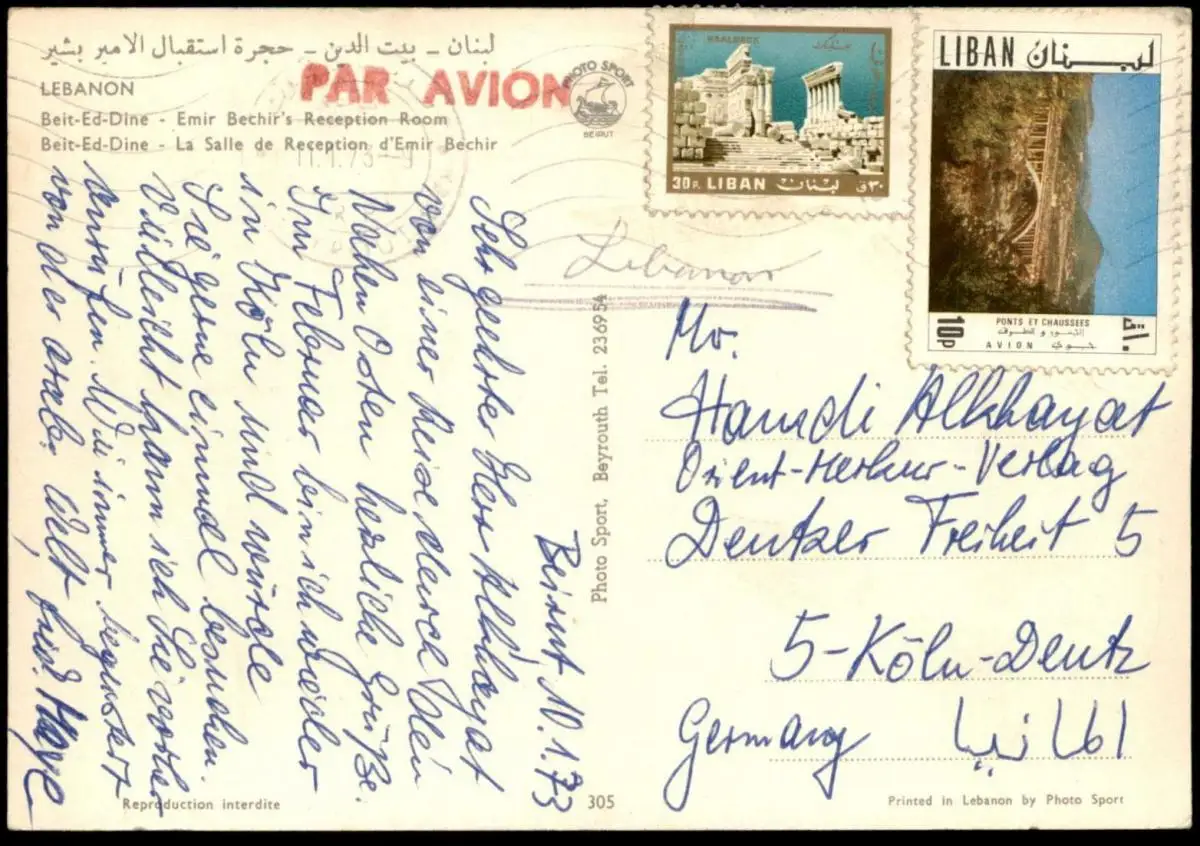 لبنان - بيت الدين - حجرة استقبال الامير بشير
LEBANON
Beit-Ed-Dine - Emir Bechir's Reception Room
Beit-Ed-Dine - La Salle de Reception d'Emir Bechir
PAR AVION
PHOTO SPORT
BEIRUT
BAALBECK
30 P. LIBAN لبنان ٣٠ ق
LIBAN لبنان
10P
PONTS ET CHAUSSEES
الجسور و الطرق
AVION جوي
11.1.73-9
Lebanon
Beirut 10.1.73
Sehr geehrter Herr Alkhayat
von einer Reise durch den
Nahen Osten herzliche Grüße.
Im Februar bin ich wieder
in Köln und würde
Sie gerne einmal besuchen.
Vielleicht kann ich Sie vorher
anrufen. Wie immer begeistert
von der arab. Welt
Photo Sport, Beyrouth Tel. 236954
Mr.
Hamdi Alkhayat
Orient-Merkur-Verlag
Deutzer Freiheit 5
5-Köln-Deutz
Germany المانيا
Reproduction interdite
305
Printed in Lebanon by Photo Sport